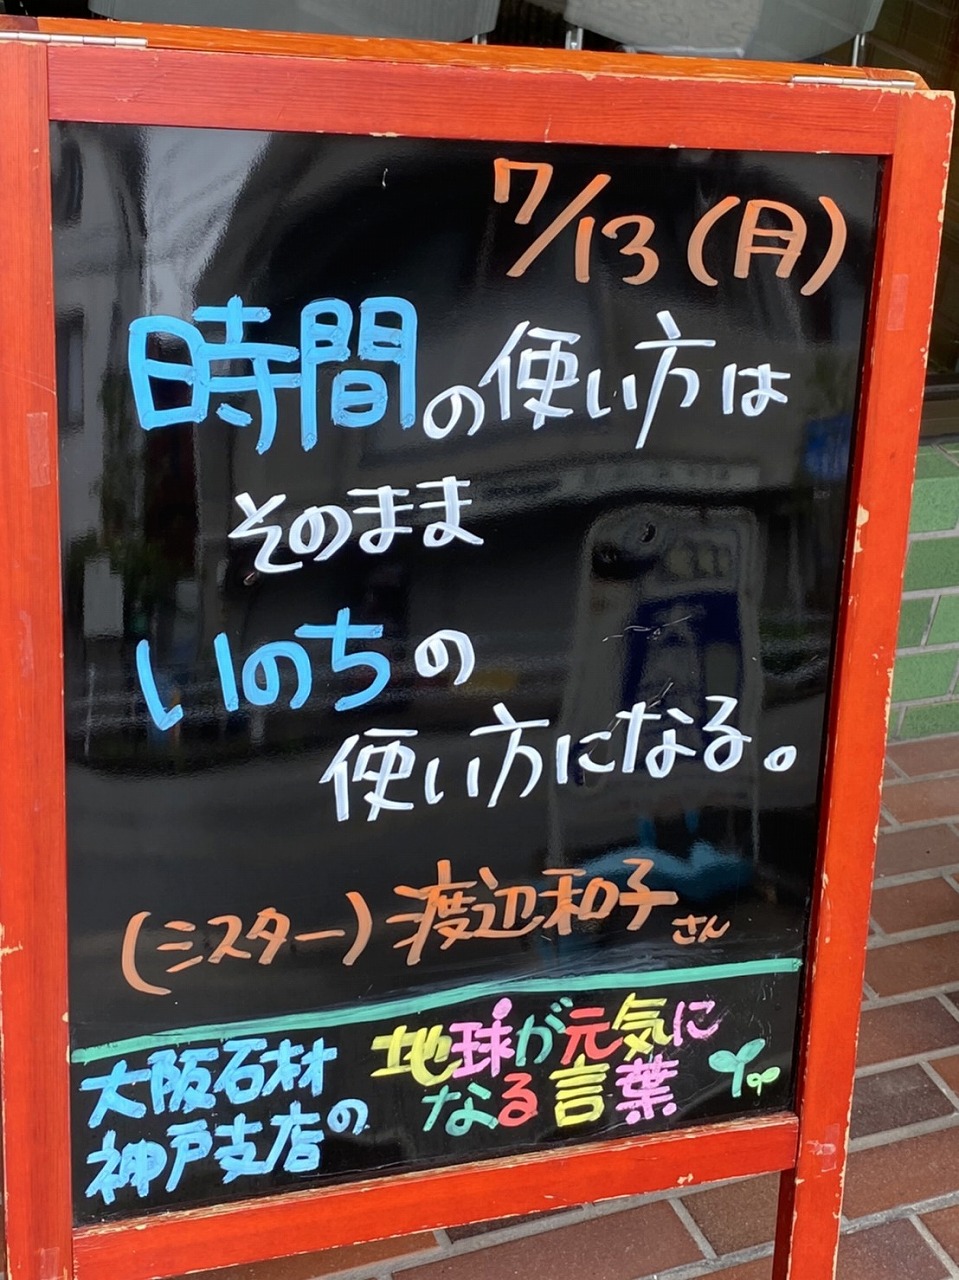 7/13(月)
時間の使い方は
そのまま
いのちの
使い方になる。
(ミスター)渡辺和子さん
大阪石材
神戸支店の
地球が元気に
なる言葉